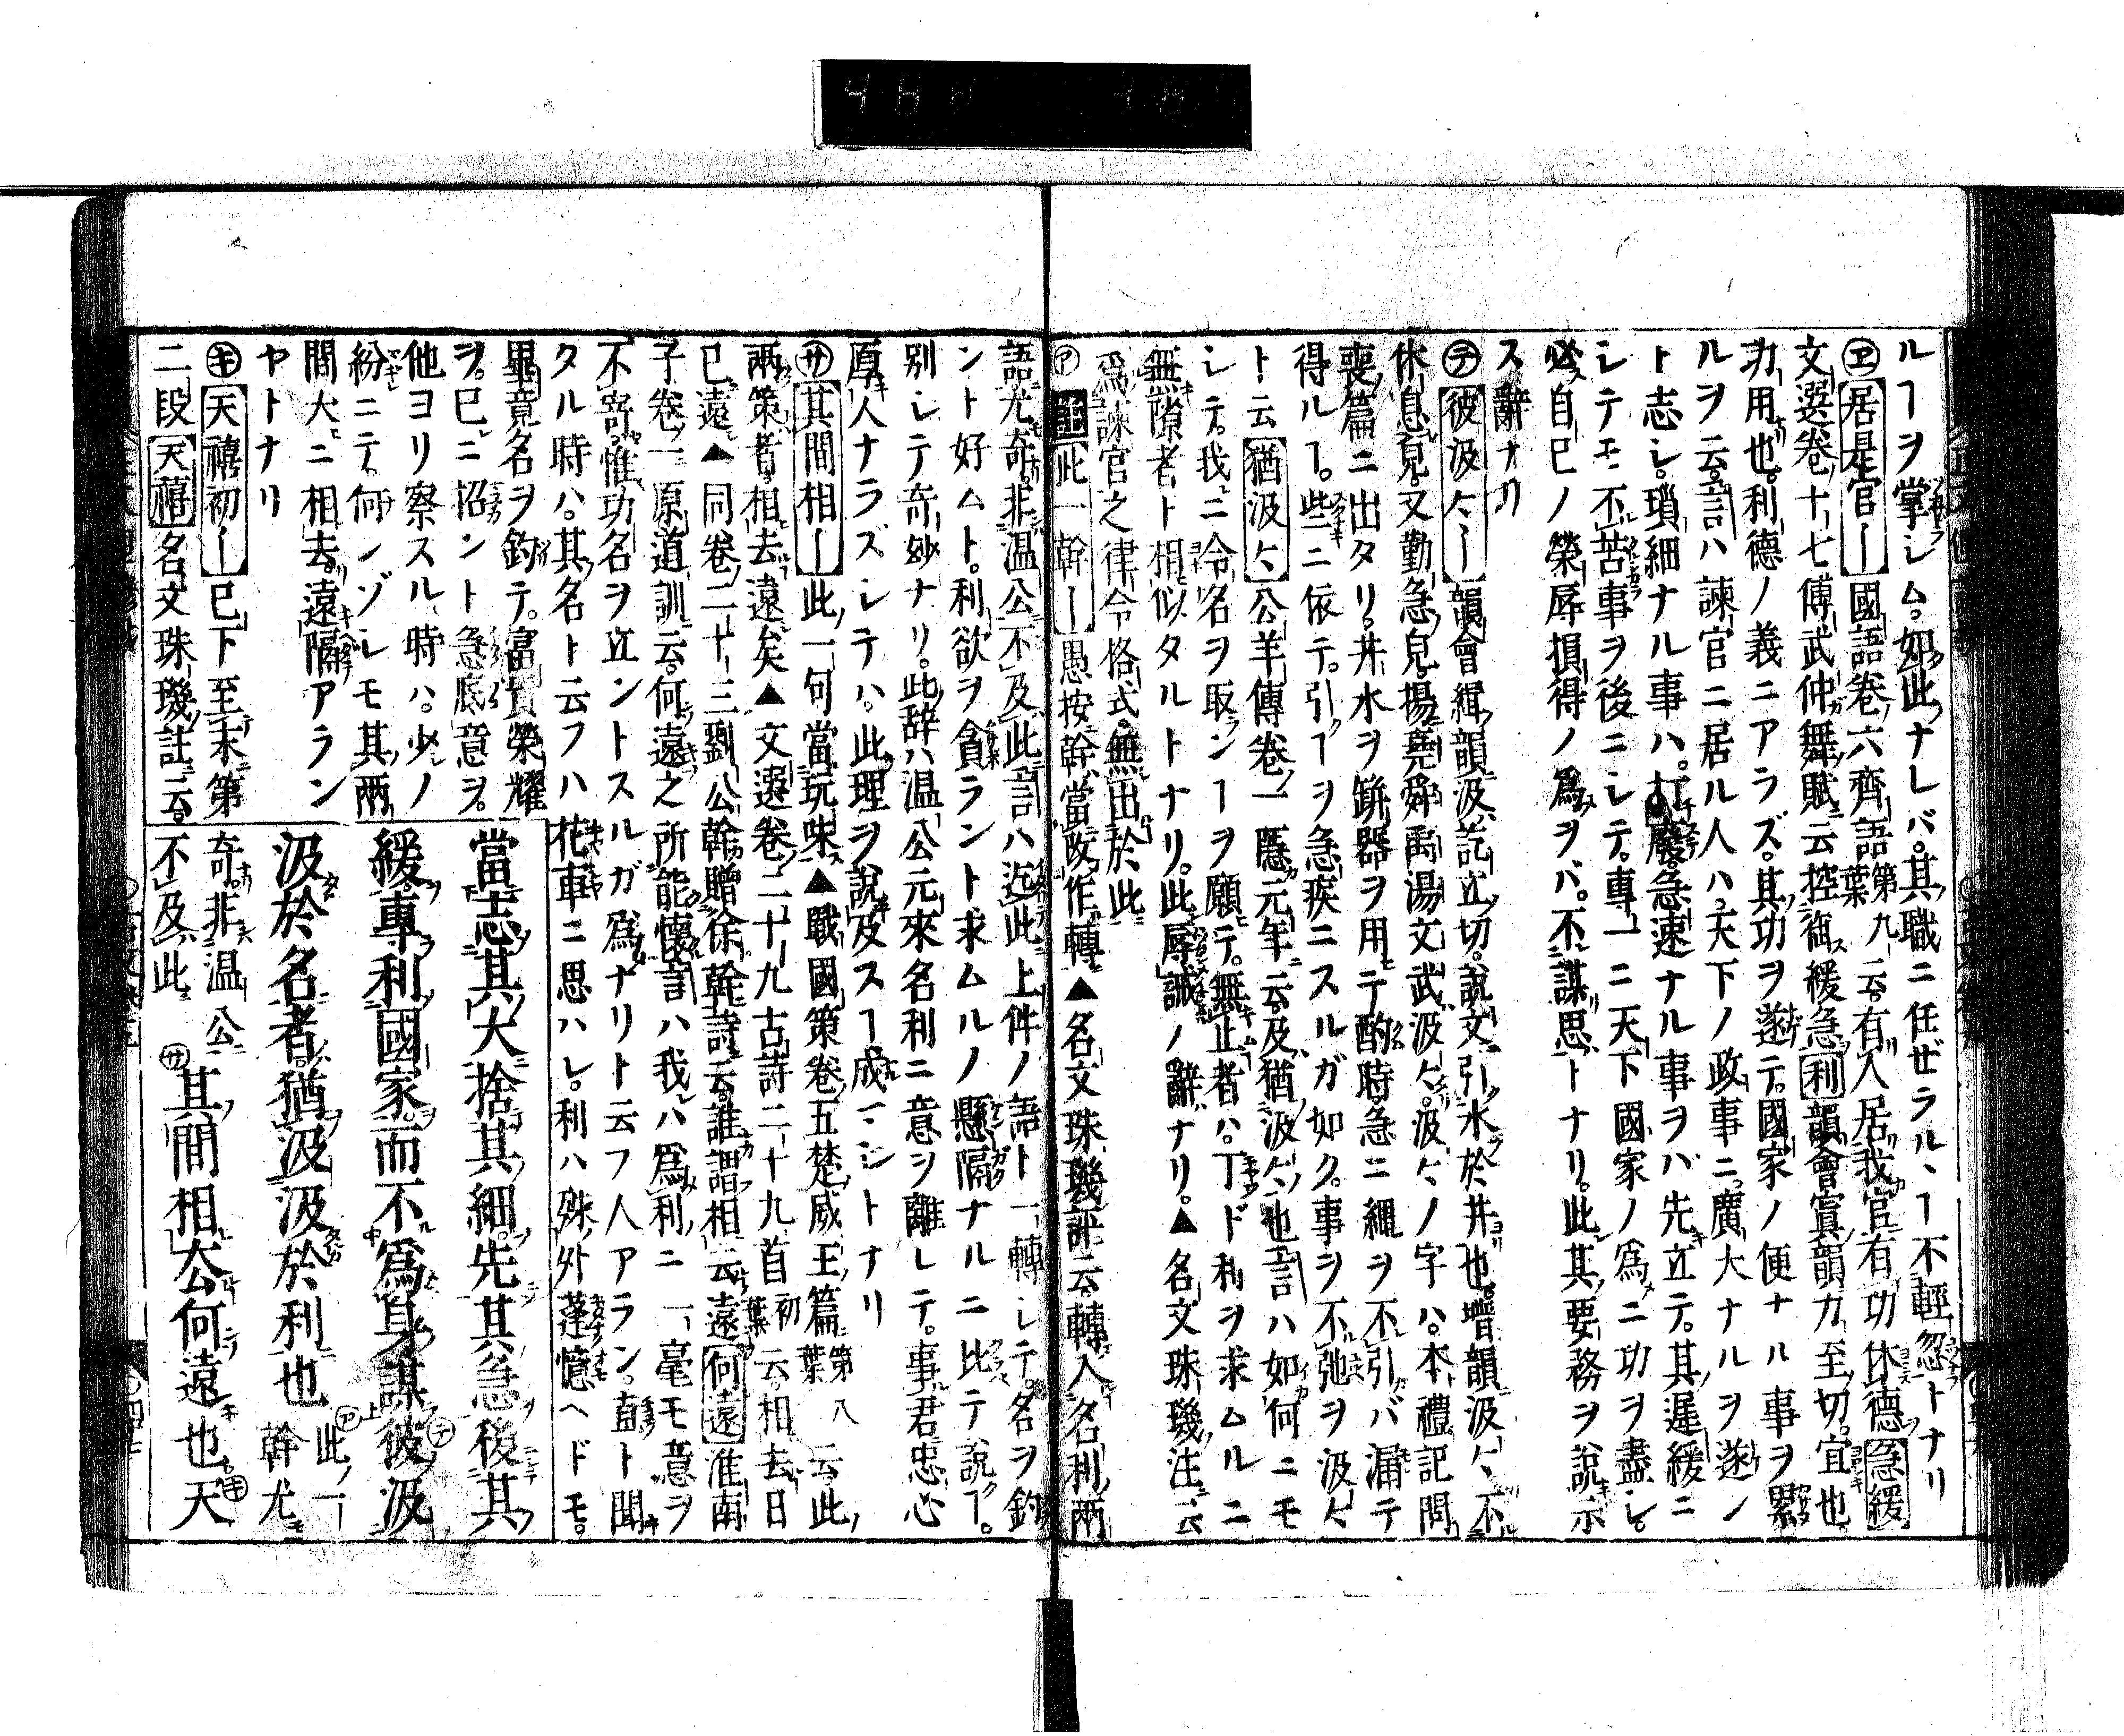 ルヿヲ掌レム。如此ナレバ。其職ニ任ゼラルヽヿ不輕忽トナリ
㋓居是官〡國語卷六齊語第九葉云。有人居我官有功休德急緩
文選卷十七傅武仲舞賦云控御緩急利韻會寘韻力至切。宜也。
功用也。利德ノ義ニアラズ。其功ヲ遂テ。國家ノ便ナル事ヲ累
ルヲ云。言ハ諫官ニ居ル人ハ。天下ノ政事ニ。廣大ナルヲ遂ン
ト志シ。瑣細ナル事ハ。打廢。急速ナル事ヲバ先立テ。其遲緩ニ
シテモ不苦事ヲ後ニシテ。專一ニ天下國家ノ爲ニ功ヲ盡シ。
必自已ノ榮辱損得ノ爲ヲバ。不謀思トナリ。此其要務ヲ說示
ス辭ナリ
㋢彼汲々〡韻會緝韻汲訖立切。說文引水於井也。增韻汲々不
休息皃。又勤急皃。揚堯舜禹湯文武汲々。汲々ノ字ハ。本禮記問
喪篇ニ出タリ。井水ヲ缾器ヲ用テ酌時急ニ繩ヲ不引バ漏テ
得ルヿ。些ニ依テ。引ヿヲ急疾ニスルガ如ク。事ヲ不弛ヲ汲々
ト云猶汲々公羊傳卷一隱元年云。及猶汲々也言ハ如何ニモ
シテ。我ニ令名ヲ取ンヿヲ願テ。無止者ハ。丁ド利ヲ求ムルニ
無隙者ト相似タルトナリ。此辱誡ノ辭ナリ。▲名文珠璣注云
爲諫官之律令格式。無出於此
㋐此一幹〡愚按幹當改作轉▲名文珠璣評云轉入名利兩
語尤奇。非温公不及此言ハ迄此上件ノ語ト一轉シテ。名ヲ釣
ント好ムト。利欲ヲ貪ラント求ムルノ懸隔ナルニ比テ說ヿ。
别シテ奇妙ナリ。此辞ハ温公元來名利ニ意ヲ離レテ。事君忠心
厚人ナラズシテハ。此理ヲ說及スヿ成マジトナリ
㋚其間相〡此一句當玩味▲戰國策卷五楚威王篇第八葉云此
兩策者。相去遠矣▲文選卷二十九古詩二十九首初葉云。相去日
已遠▲同卷二十三劉公幹贈徐幹詩云。誰謂相云遠何遠淮南
子卷一原道訓云。何遠之所能懷言ハ我ハ爲利ニ一毫モ意ヲ
不寄。惟功名ヲ立ントスルガ爲ナリト云フ人アラン。直ト聞
タル時ハ。其名ト云フハ花車ニ思ハレ。利ハ殊外蓬憶ヘドモ。
畢竟名ヲ釣テ。富貴榮耀
ヲ。已ニ沼ント急底意ヲ。
他ヨリ察スル時ハ。少ノ
紛ニテ。何ンゾレモ其兩
間大ニ相去。遠隔アラン
ヤトナリ
㋖天禧初〡已下至末第
二段天禧名文珠璣註云。
當志其大捨其細先其急後其
緩。專利國家。而不爲身謀彼汲
汲於名者。猶汲汲於利也此一幹尤
奇。非温公不及此其間相去何遠也天